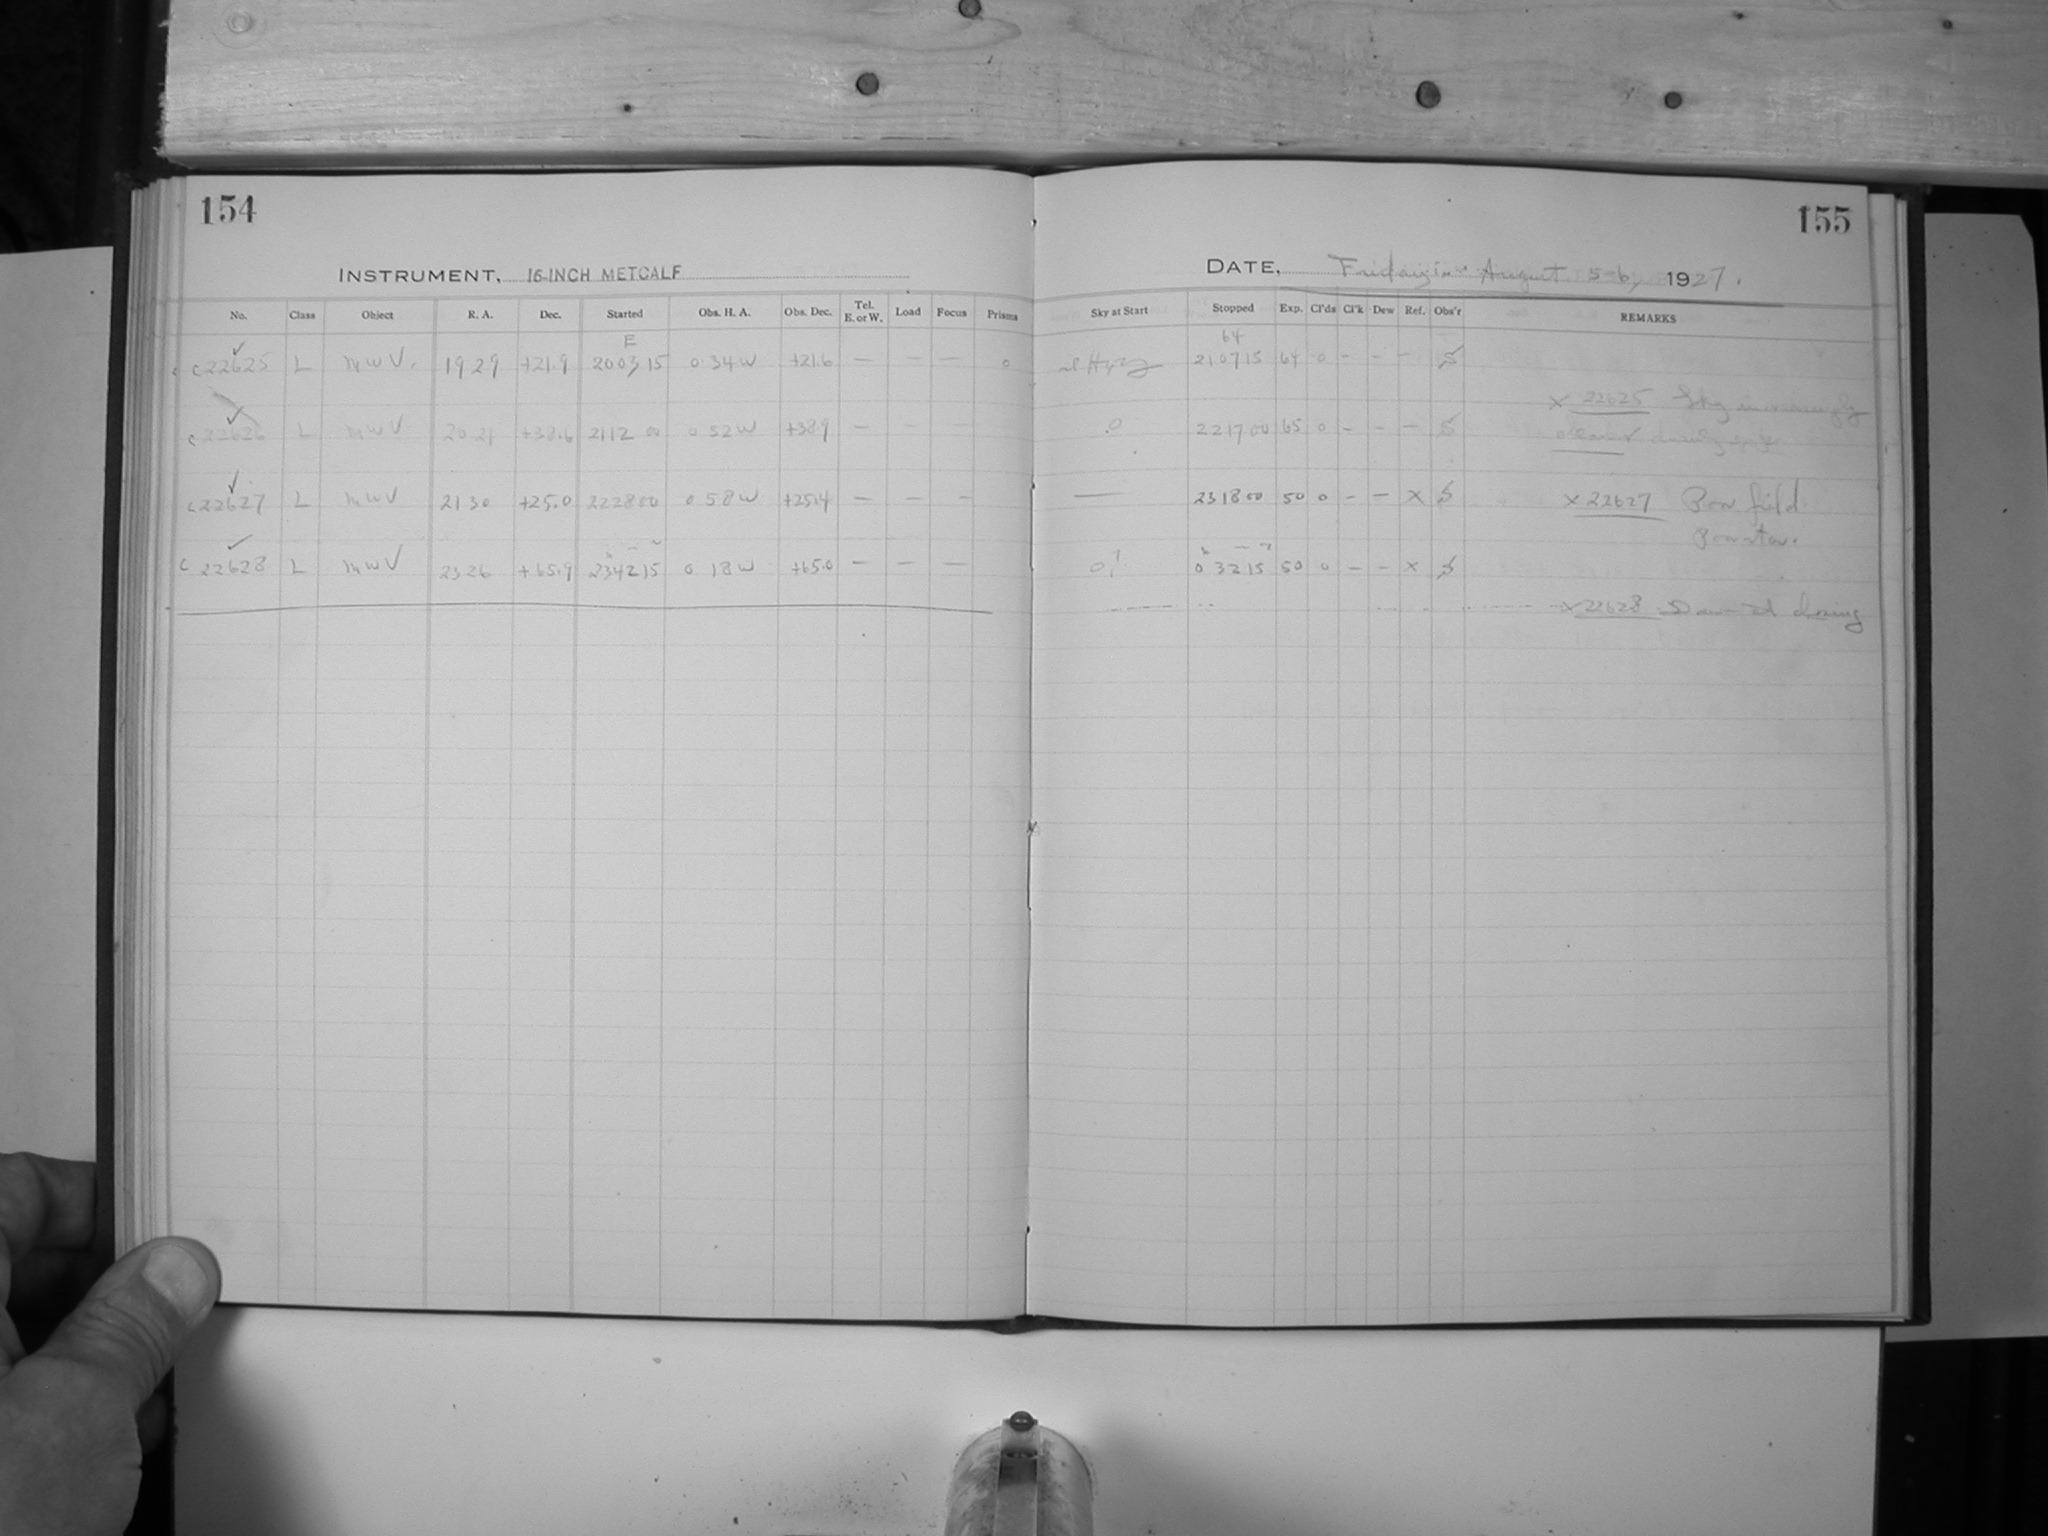 154
155
INSTRUMENT, 16-INCH METCALF
DATE, Friday August 5-6, 1927.
No. Class Object R. A. Dec. Started Obs. H. A. Obs. Dec. Tel. E. or W. Load Focus Prisms Sky at Start Stopped Exp. Cl'ds Cl'k Dew Ref. Obs'r REMARKS
E 64
c22625 L MWV. 19 29 +21.9 20 03 15 0 34 W +21.6 — — — 0 21 07 15 64 0 - - - S
x 22625 Sky increasingly
c22626 L MWV 20 21 +38.6 21 12 00 0 52 W +38.9 — — — 0 22 17 00 65 0 - - - S
clearer during
c22627 L MWV 21 30 +25.0 22 28 00 0 58 W +25.4 — — — — 23 18 00 50 0 - - x S x 22627 Poor field.
Poor star.
c22628 L MWV 23 26 +65.9 23 42 15 0 18 W +65.0 — — — 0? 0 32 15 50 0 - - x S
x22628 Dawn at closing